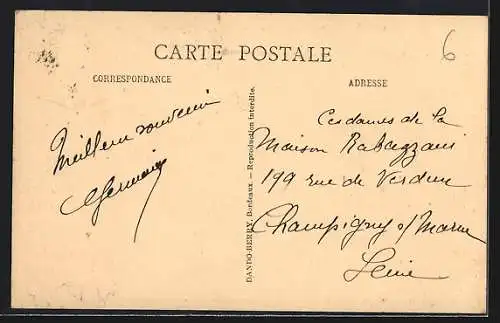 CARTE POSTALE
6
CORRESPONDANCE
ADRESSE
Meilleur souvenir
Germaine
DANDO-BERRY, Bordeaux. - Reproduction interdite.
Ces dames de la
Maison Rabazzani
199 rue de Verdun
Champigny s/ Marne
Seine